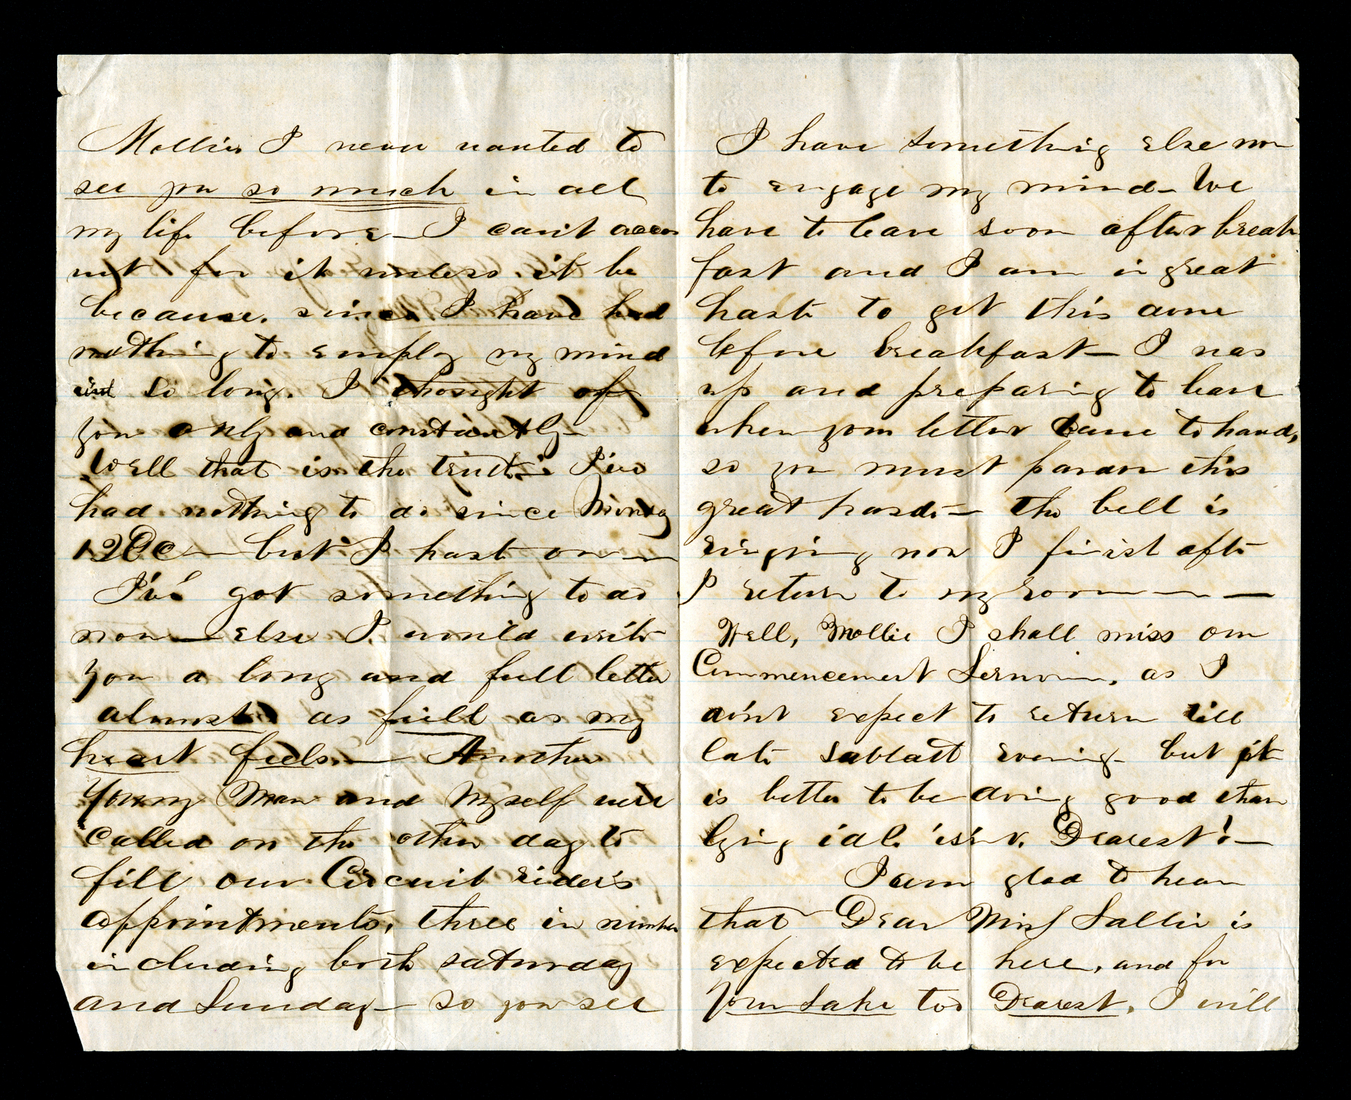 Mollie I never wanted to
see you so much in all
my life before — I can't accou
nt for it unless it be
because, since I have had
nothing to employ my mind
so long. I thought of
you only and constantly —
Well that is the truth: I've
had nothing to do since Monday
12 Oc — but I hast on —
I've got something to do
now — else I would write
you a long and full letter
almost as full as my
heart feels — Another
Young Man and Myself were
called on the other day to
fill our Circuit rider's
appointments, three in number
including both saturday
and Sunday — so you see
I have something else now
to engage my mind — We
have to leave soon after break
fast and I am in great
haste to get this done
before breakfast — I was
up and preparing to leave
when your letter came to hand,
so you must pardon this
great haste — the bell is
ringing now I finish after
I return to my room — — —
Well, Mollie I shall miss our
Commencement Sermon, as I
don't expect to return till
late Sabbath evening — but it
is better to be doing good than
lying idle isn't, Dearest? —
I am glad to hear
that Dear Miss Sallie is
expected to be here, and for
Your Sake too Dearest, I will